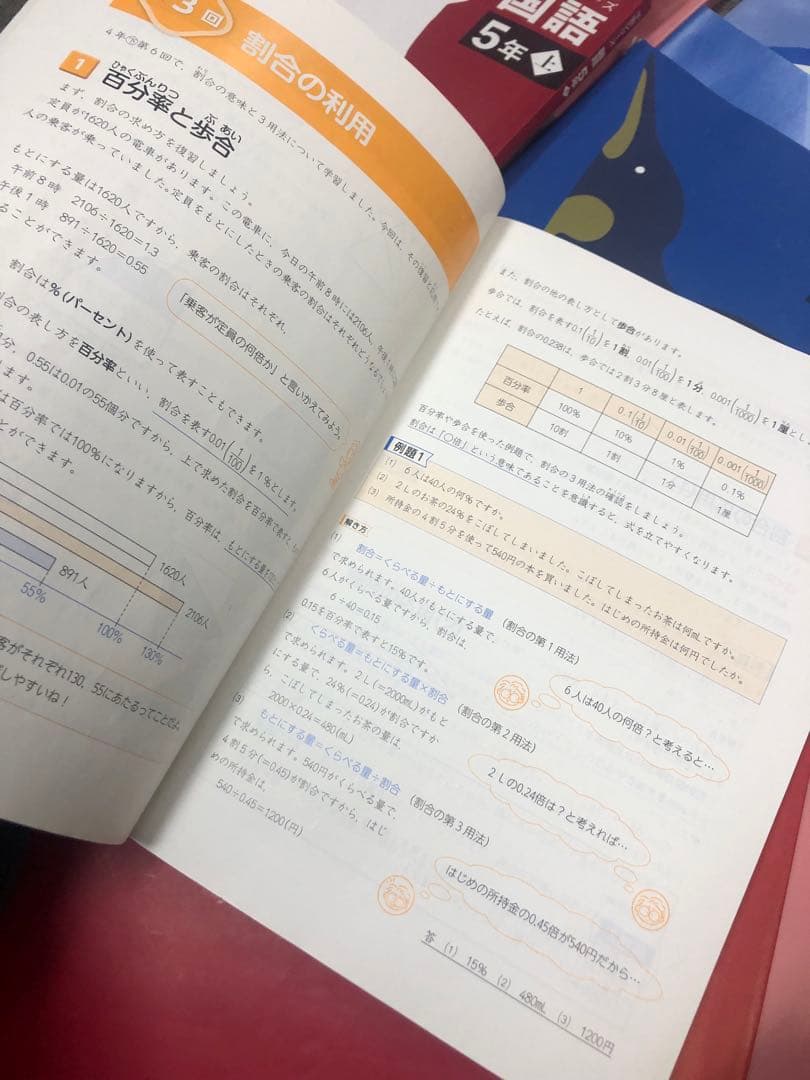 国語
5年上
3回
割合の利用
4年下第6回で、割合の意味と3用法について学習しました。今回は、その復習と
1
ひゃくぶんりつ ぶあい
百分率と歩合
まず、割合の求め方を復習しましょう。
定員が1620人の電車があります。この電車に、今日の午前8時には2106人、午後1時
人の乗客が乗っていました。定員をもとにしたときの乗客の割合はそれぞれどうなるでし
もとにする量は1620人ですから、乗客の割合はそれぞれ、
午前8時 2106÷1620=1.3
午後1時 891÷1620=0.55
ることができます。
「乗客が定員の何倍か」と言いかえてみよう。
割合は%(パーセント)を使って表すこともできます。
合の表し方を百分率といい、割合を表す0.01(1/100)を1%とします。
0.55は0.01の55個分ですから、上で求めた割合を百分率で表すと
は百分率では100%になりますから、百分率は、もとにする量
とができます。
1620人
891人
2106人
55%
100%
130%
客がそれぞれ130、55にあたるってことだね
しやすいね!
また、割合の他の表し方として歩合があります。
歩合では、割合を表す0.1(1/10)を1割、0.01(1/100)を1分、0.001(1/1000)を1厘とし
たとえば、割合の0.238は、歩合では2割3分8厘と表します。
1 0.1(1/10) 0.01(1/100) 0.001(1/1000)
百分率 100% 10% 1% 0.1%
歩合 10割 1割 1分 1厘
百分率や歩合を使った例題で、割合の3用法の確認をしましょう。
割合は「○倍」という意味であることを意識すると、式を立てやすくなります。
例題1
(1) 6人は40人の何%ですか。
(2) 2Lのお茶の24%をこぼしてしまいました。こぼしてしまったお茶は何mLですか。
(3) 所持金の4割5分を使って540円の本を買いました。はじめの所持金は何円でしたか。
解き方
(1) 割合=くらべる量÷もとにする量 (割合の第1用法)
で求められます。40人がもとにする量で、
6人がくらべる量ですから、割合は、
6÷40=0.15
0.15を百分率で表すと15%です。
6人は40人の何倍?と考えると…
(2) くらべる量=もとにする量×割合 (割合の第2用法)
で求められます。2L(=2000mL)がもと
にする量で、24%(=0.24)が割合ですか
ら、こぼしてしまったお茶の量は、
2000×0.24=480(mL)
2Lの0.24倍は?と考えれば…
(3) もとにする量=くらべる量÷割合 (割合の第3用法)
で求められます。540円がくらべる量で、
4割5分(=0.45)が割合ですから、はじ
めの所持金は、
540÷0.45=1200(円)
はじめの所持金の0.45倍が540円だから…
答 (1) 15% (2) 480mL (3) 1200円